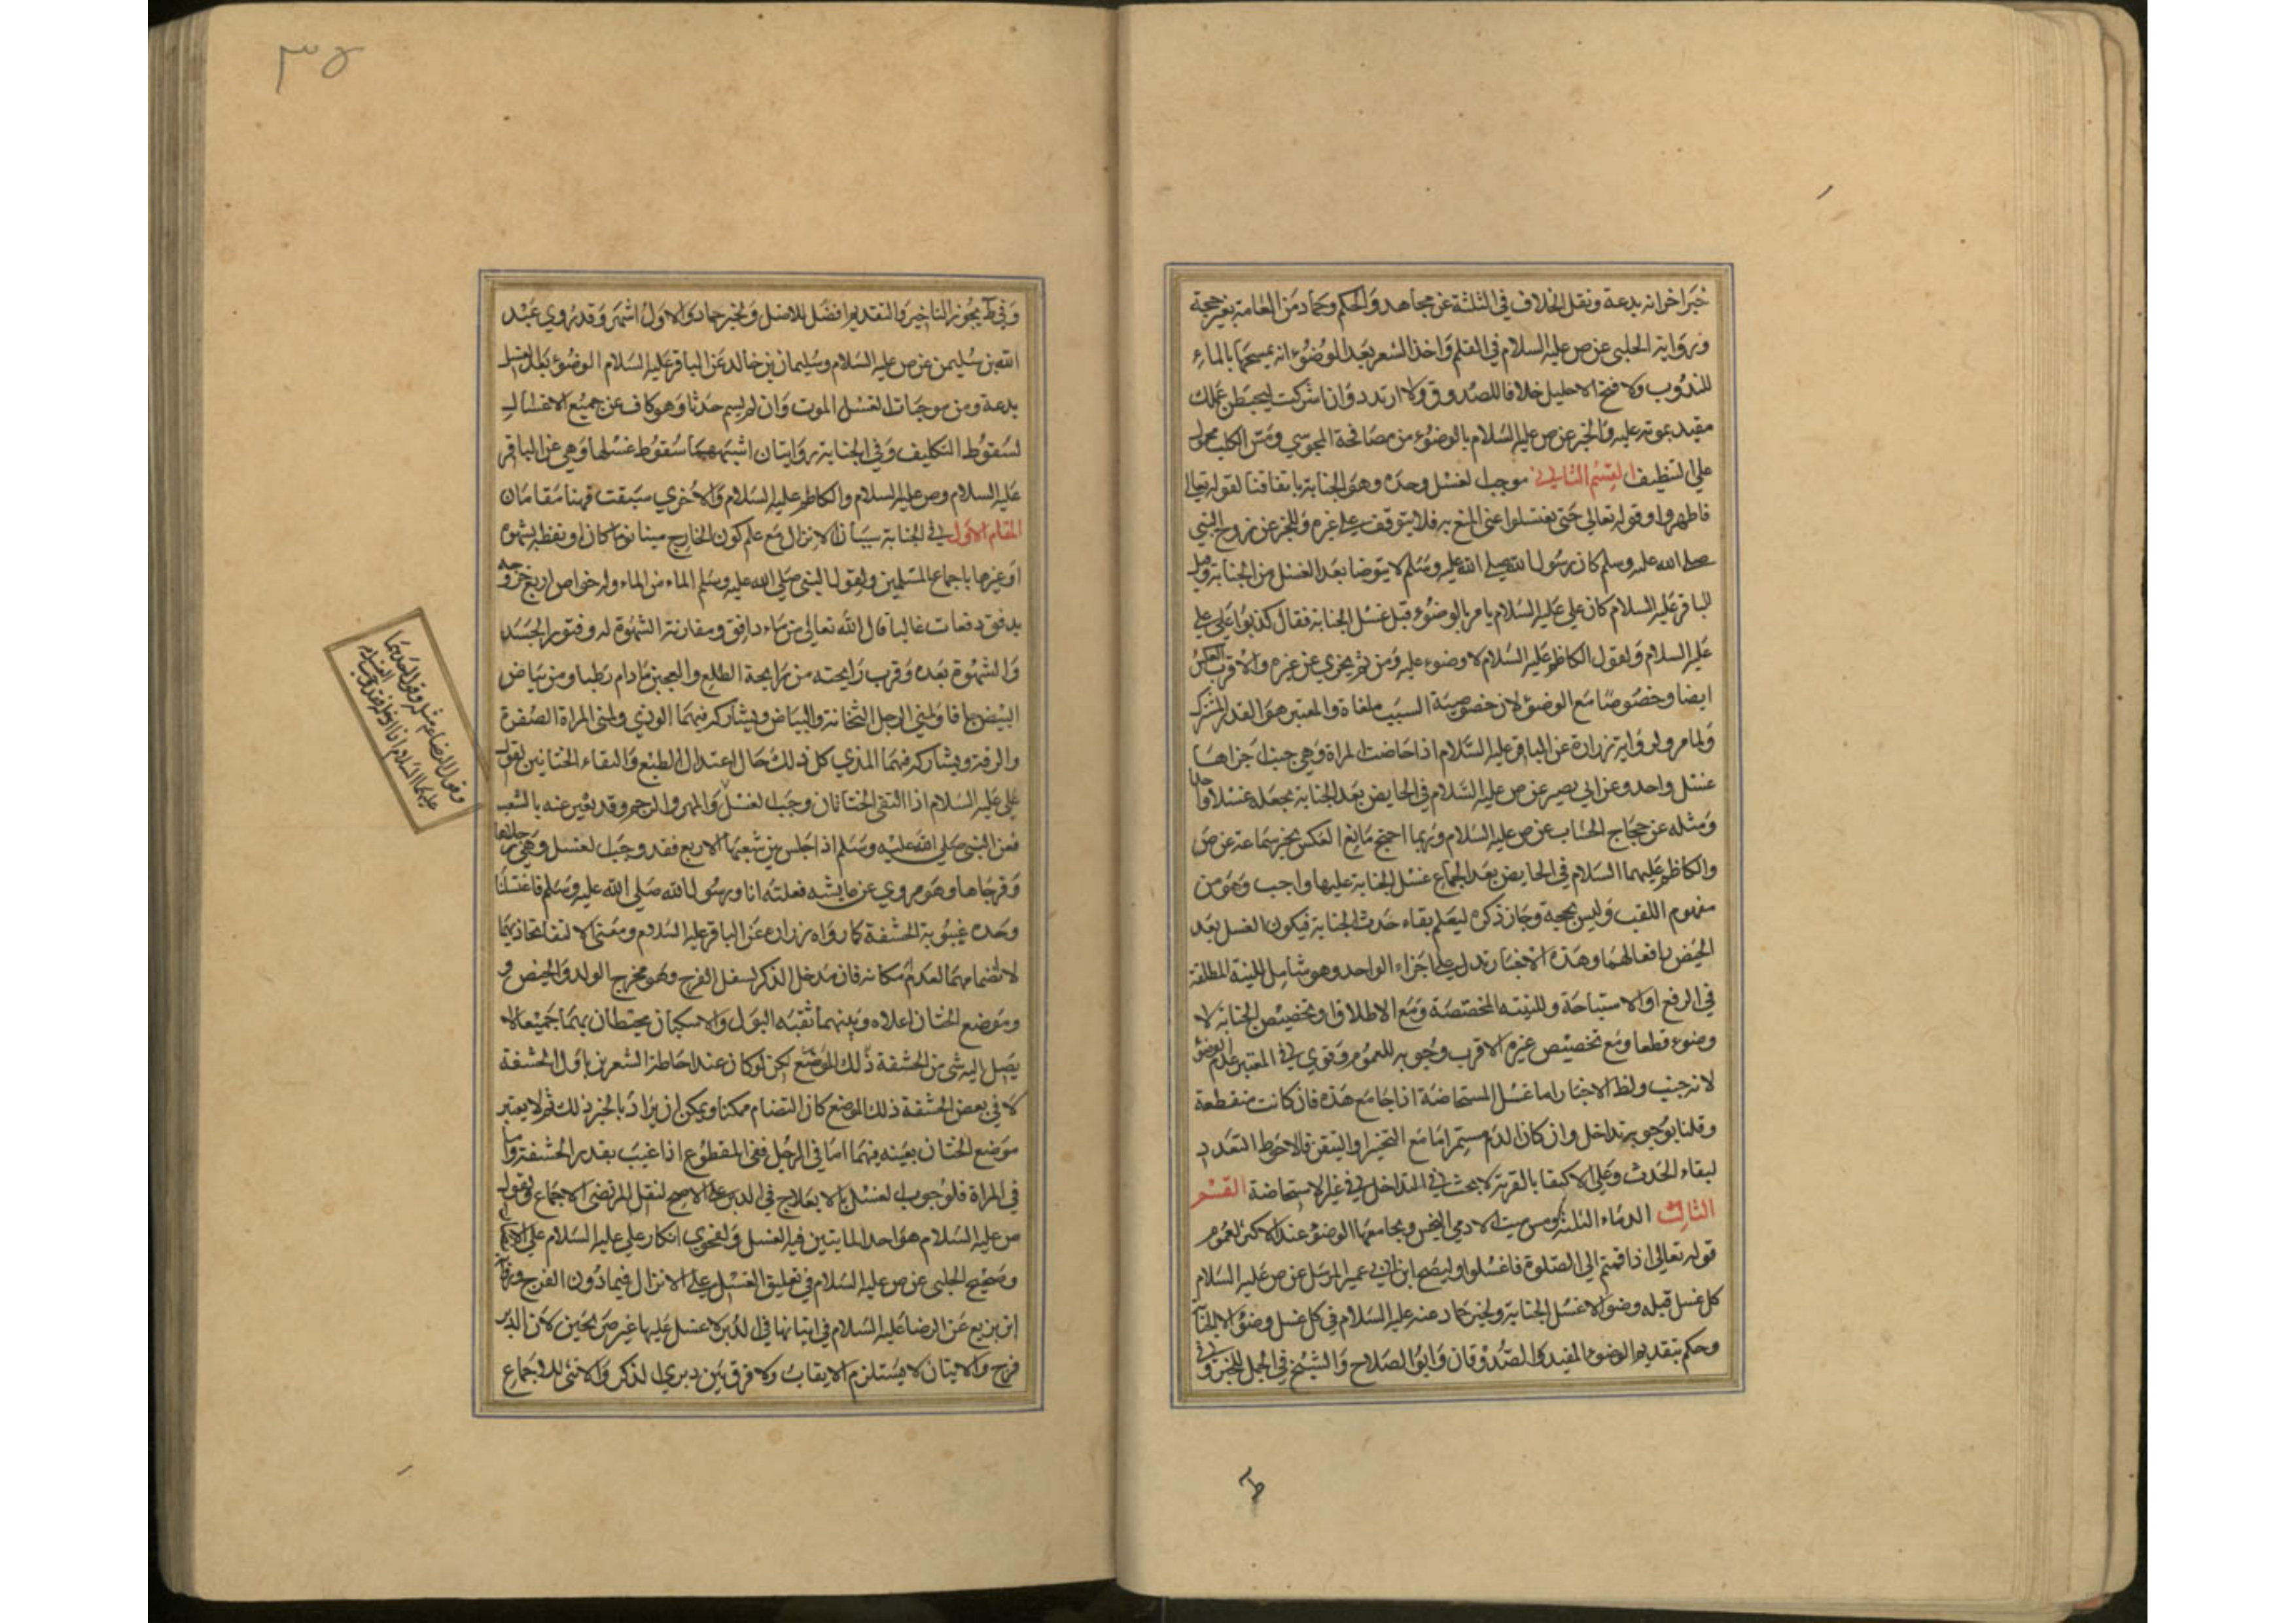 خبر اخر انه بدعة ونقل الخلاف في الثلثة عن مجاهد والحكم وحماد من العامة بغير حجة
ورواية الحلبي عن ص عليه السلام في القلم واخذ الشعر بعد الوضوء انه يمسحها بالماء
للندوب ولا فتح الاحليل خلافا للصدوق ولا ارتدد وان اشركت ليحبطن عملك
مقيد بموته عليه والخبر عن ص عليه السلام بالوضوء من مصافحة المجوسي ومس الكلب محمول
على التنظيف القسم الثاني موجب لغسل وحده وهو الجنابة باتفاقنا لقوله تعالى
فاطهروا وقوله تعالى حتى تغتسلوا عنى المنع به فلا يتوقف على غيره وللخبر عن زوج النبي
صلى الله عليه وسلم كان رسول الله صلى الله عليه وسلم لا يتوضا بعد الغسل من الجنابة وقيل
للباقر عليه السلام كان علي عليه السلام يامر بالوضوء قبل غسل الجنابة فقال كذبوا على علي
عليه السلام ولقول الكاظم عليه السلام لا وضوء عليه ومن ثم يجزي عن غيره والاقرب العكس
ايضا وخصوصا مع الوضوء لان خصوصية السبب ملغاة والمعتبر هو القدر المشترك
ولما مر ولرواية زرارة عن الباقر عليه السلام اذا حاضت المراة وهي جنب اجزاها
غسل واحد وعن ابي بصير عن ص عليه السلام في الحايض بعد الجنابة تجعله غسلا واحدا
ومثله عن حجاج الخشاب عن ص عليه السلام وربما احتج مانع العكس بخبر سماعة عن ص
والكاظم عليهما السلام في الحايض بعد الجماع غسل الجنابة عليها واجب وهو من
مفهوم اللقب وليس بحجة وجاز ذكره ليعلم بقاء حدث الجنابة فيكون الغسل بعد
الحيض رافعا لهما وهذه الاخبار تدل على اجزاء الواحد وهو شامل للنية المطلقة
في الرفع او الاستباحة وللنية المختصة ومع الاطلاق او تخصيص الجنابة لا
وضوء قطعا ومع تخصيص غيره الاقرب وجوبه للعموم وقوي في المعتبر عدم الوضوء
لانه جنب ولظ الاخبار اما غسل المستحاضة اذا جامع هذه فان كانت منقطعة
وقلنا بوجوبه تداخل وان كان الدم مستمرا فامع التخير او التيقن فالاحوط التعدد
لبقاء الحدث وعلى الاكتفا بالقربة لا بحث في التداخل في غير الاستحاضة القسم
الثالث الدماء الثلثة ومس ميت الادمي النجس ويجامعها الوضوء عند الاكثر لعموم
قوله تعالى اذا قمتم الى الصلوة فاغسلوا وليصح ابن ابي عمير المرسل عن ص عليه السلام
كل غسل قبله وضوء الا غسل الجنابة ولخبر حماد عنه عليه السلام في كل غسل وضوء الا الجنابة
وحكم بتقديم الوضوء المفيد والصدوقان وابو الصلاح والشيخ في الجمل للخبر وفي
ط
٣٥
وفي ط يجوز التاخير والتقديم افضل للاصل ولخبر حماد والاول اشهر وقد روي عبد
الله بن سليمن عن ص عليه السلام وسليمان بن خالد عن الباقر عليه السلام الوضوء بعد الغسل
بدعة ومن موجبات الغسل الموت وان لم يسم حدثا وهو كاف عن جميع الاغسال
لسقوط التكليف وفي الجنابة روايتان اشبههما سقوط غسلها وهي عن الباقر
عليه السلام وص عليه السلام والكاظم عليه السلام والاخرى سبقت فهنا مقامان
المقام الاول في الجنابة سببان الانزال مع علم كون الخارج منيا نوما كان او يقظة بشهوة
او غيرها باجماع المسلمين ولقول النبي صلى الله عليه وسلم الماء من الماء وله خواص اربع خروجه
بدفق دفعات غالبا قال الله تعالى من ماء دافق ومقارنة الشهوة له وفتور الجسد
والشهوة بعده وقرب رايحته من رايحة الطلع والعجين مادام رطبا ومن بياض
البيض جافا ولمني الرجل الثخانة والبياض ويشاركه فيهما الوذي ولمني المراة الصفرة
والرقة ويشاركه فيهما المذي كل ذلك حال اعتدال الطبع والتقاء الختانين لقول
علي عليه السلام اذا التقى الختانان وجب الغسل والمهر والرجم وقد يعبر عنه بالشعب
فعن النبي صلى الله عليه وسلم اذا جلس بين شعبها الاربع فقد وجب الغسل وهي رجلاها
وفرجاها وهو مروي عن عايشة فعلته انا ورسول الله صلى الله عليه وسلم فاغتسلنا
وحده غيبوبة الحشفة كما رواه زرارة عن الباقر عليه السلام ومعنى الالتقا تحاذيهما
لا انضمامهما لعدم امكانه فان مدخل الذكر اسفل الفرج وهو مخرج الولد والحيض و
وموضع الختان اعلاه وبينهما ثقبة البول والاسكتان يحيطان بهما جميعا لا
يصل اليه شي من الحشفة ذلك الموضع لكن لو كان عند احاطة الشعرين باول الحشفة
لا في بعض الحشفة ذلك الموضع كان التضام ممكنا ويمكن ان يراد بالخبر ذلك ثم لا يعتبر
موضع الختان بعينه فيهما اما في الرجل ففي المقطوع اذا غيب بقدر الحشفة واما
في المراة فلوجوب الغسل بالايلاج في الدبر على الاصح لنقل المرتضى الاجماع ولقول
ص عليه السلام هو احد المايتين فيه الغسل ولفحوى انكار علي عليه السلام على الانصار
وصحيح الحلبي عن ص عليه السلام في تعليق الغسل على الانزال فيما دون الفرج ورواية
ابن بزيع عن الرضا عليه السلام في اتيانها في الدبر لا غسل عليها غير صريحين لان الدبر
فرج والاتيان لا يستلزم الايقاب ولا فرق بين دبري الذكر والانثى للاجماع
وقول الرضا مثله وقول احدهما
عليهما السلام اذا ادخله فقد وجب الغسل